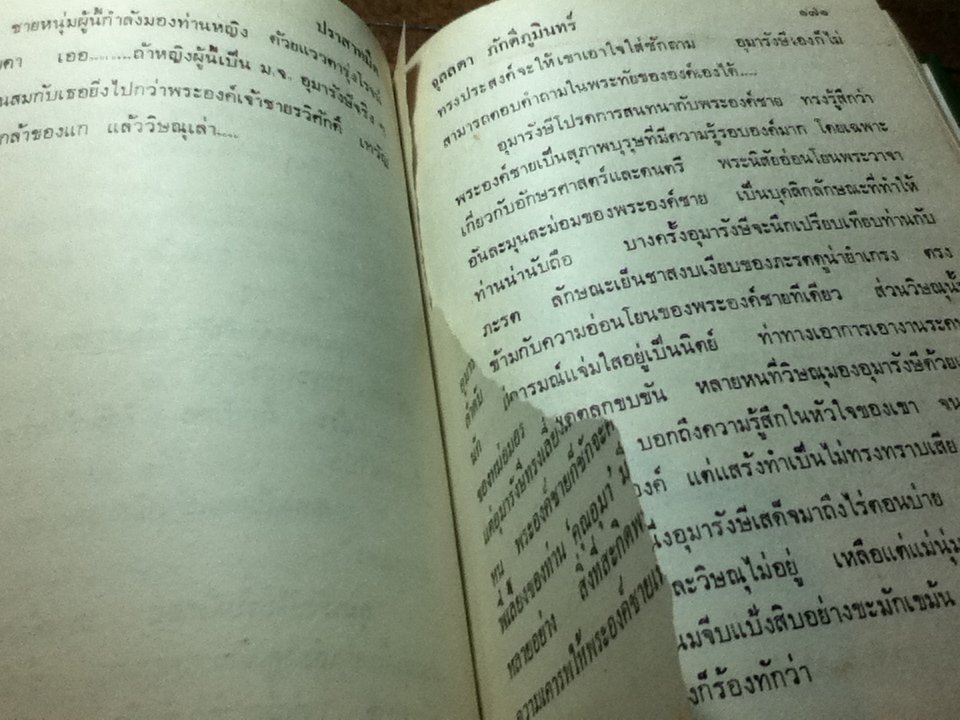 ปราสาทมืด
ชายหนุ่มผู้นี้กำลังมองท่านหญิง ด้วยแววตารุ่งโรจน์
เออ.........ถ้าหญิงผู้นี้เป็น ม.จ. อุมารังษีจริง ๆ
สมกับเธอยิ่งไปกว่าพระองค์เจ้าชายรวิศักดิ์
กล้าของแก แล้ววิษณุเล่า....
จุลลดา ภักดีภูมินทร์
๑๗๑
ทรงประสงค์จะให้เขาเอาใจใส่ซักถาม อุมารังษีเองก็ไม่
สามารถตอบคำถามในพระทัยขององค์เองได้....
อุมารังษีโปรดการสนทนากับพระองค์ชาย ทรงรู้สึกว่า
พระองค์ชายเป็นสุภาพบุรุษที่มีความรู้รอบองค์มาก โดยเฉพาะ
เกี่ยวกับอักษรศาสตร์และดนตรี พระนิสัยอ่อนโยนพระวาจา
อันละมุนละม่อมของพระองค์ชาย เป็นบุคลิกลักษณะที่ทำให้
ท่านน่านับถือ บางครั้งอุมารังษีจะนึกเปรียบเทียบท่านกับ
ภะรต ลักษณะเย็นชาสงบเงียบของภะรตดูน่ายำเกรง ตรง
ข้ามกับความอ่อนโยนของพระองค์ชายทีเดียว ส่วนวิษณุนั้น
มีอารมณ์แจ่มใสอยู่เป็นนิตย์ ท่าทางเอาการเอางาน
ตลกขบขัน หลายหนที่วิษณุมองอุมารังษีด้วย
บอกถึงความรู้สึกในหัวใจของเขา จน
องค์ แต่แสร้งทำเป็นไม่ทรงทราบเสีย
อุมารังษีเสด็จมาถึงไร่ตอนบ่าย
ละวิษณุไม่อยู่ เหลือแต่แม่นุ่ม
มจีบแป้งสิบอย่างขะมักเขม้น
งก็ร้องทักว่า
ของหม่อมอร
แต่อุมารังษีทรงเลี่ยง
พระองค์ชายก็ชักจะ
พี่เลี้ยงของท่าน คุณอุมา
หลายอย่าง สิ่งที่สะกิด
ความเคารพให้พระองค์ชาย